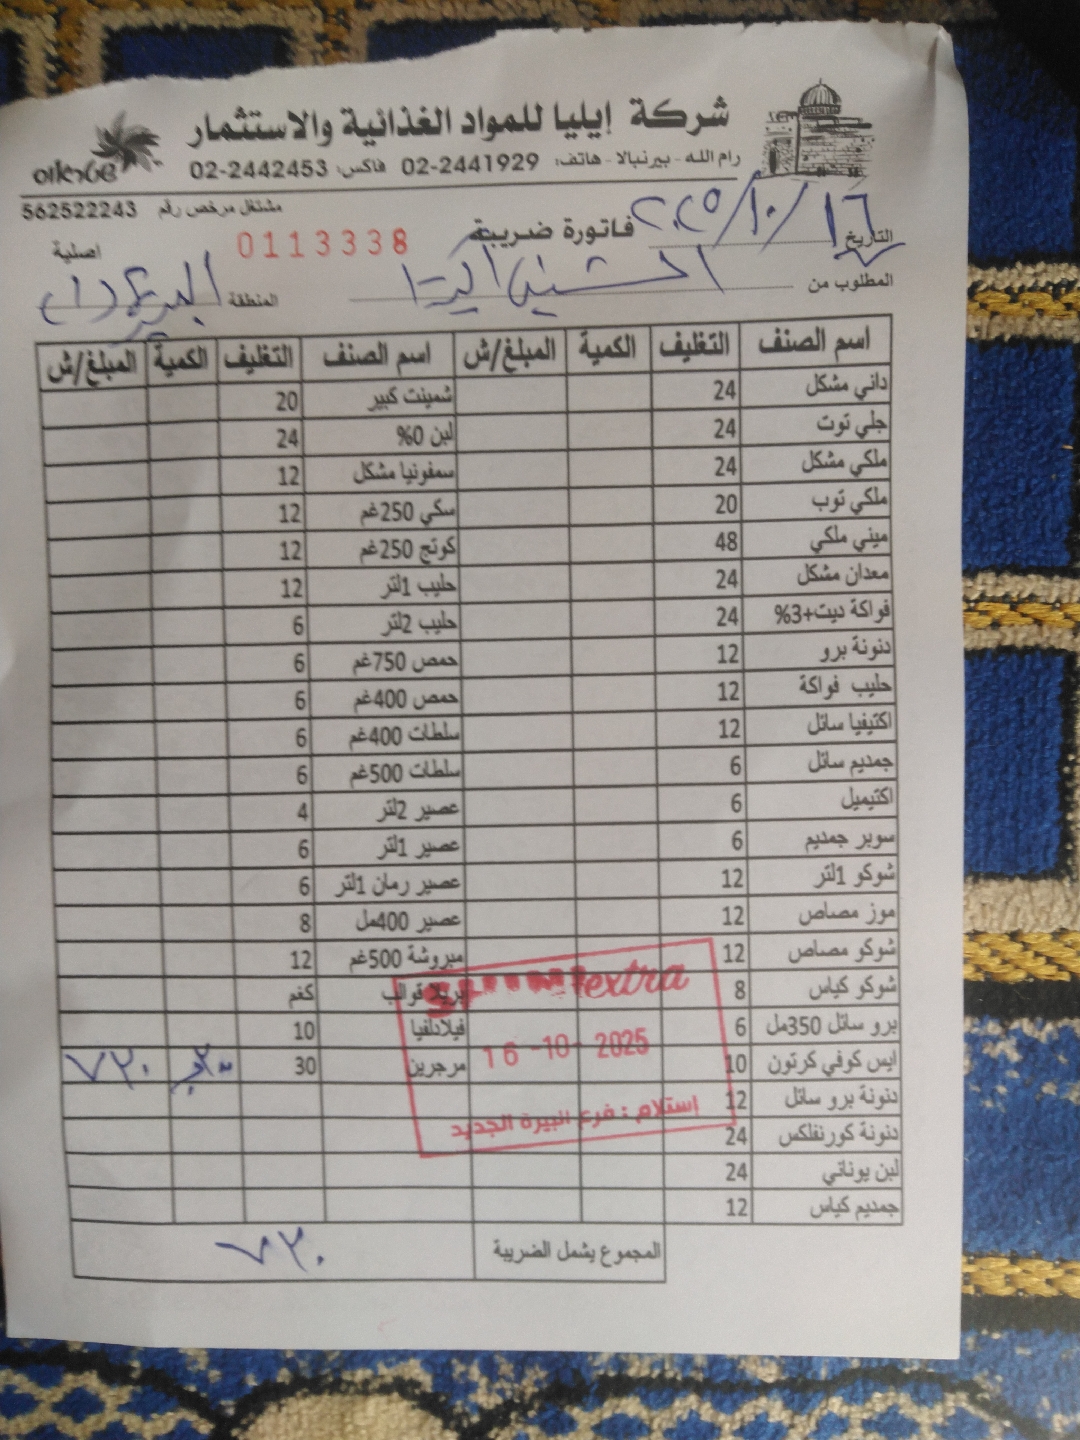 شركة إيليا للمواد الغذائية والاستثمار
رام الله - بيرنبالا - هاتف: 02-2441929 فاكس: 02-2442453
שטראוס
مشتغل مرخص رقم 562522243
التاريخ ٢٠٢٥/١٠/١٦
فاتورة ضريبة
0113338
اصلية
المطلوب من
المنطقة البيرة
اسم الصنف التغليف الكمية المبلغ/ش اسم الصنف التغليف الكمية المبلغ/ش
داني مشكل 24 شمينت كبير 20
جلي توت 24 لبن 0% 24
ملكي مشكل 24 سمفونيا مشكل 12
ملكي توب 20 سكي 250غم 12
ميني ملكي 48 كوتج 250غم 12
معدان مشكل 24 حليب 1لتر 12
فواكة ديت+3% 24 حليب 2لتر 6
دنونة برو 12 حمص 750غم 6
حليب فواكة 12 حمص 400غم 6
اكتيفيا سائل 12 سلطات 400غم 6
جمديم سائل 6 سلطات 500غم 6
اكتيميل 6 عصير 2لتر 4
سوبر جمديم 6 عصير 1لتر 6
شوكو 1لتر 12 عصير رمان 1لتر 6
موز مصاص 12 عصير 400مل 8
شوكو مصاص 12 مبروشة 500غم 12
شوكو كياس 8 بريلا قوالب كغم
برو سائل 350مل 6 فيلادلفيا 10
ايس كوفي كرتون 10 مرجرين 30 ٧٣٠
دنونة برو سائل 12
دنونة كورنفلكس 24
لبن يوناني 24
جمديم كياس 12
المجموع يشمل الضريبة ٧٣٠
extra
16 -10- 2025
إستلام : فرع البيرة الجديد